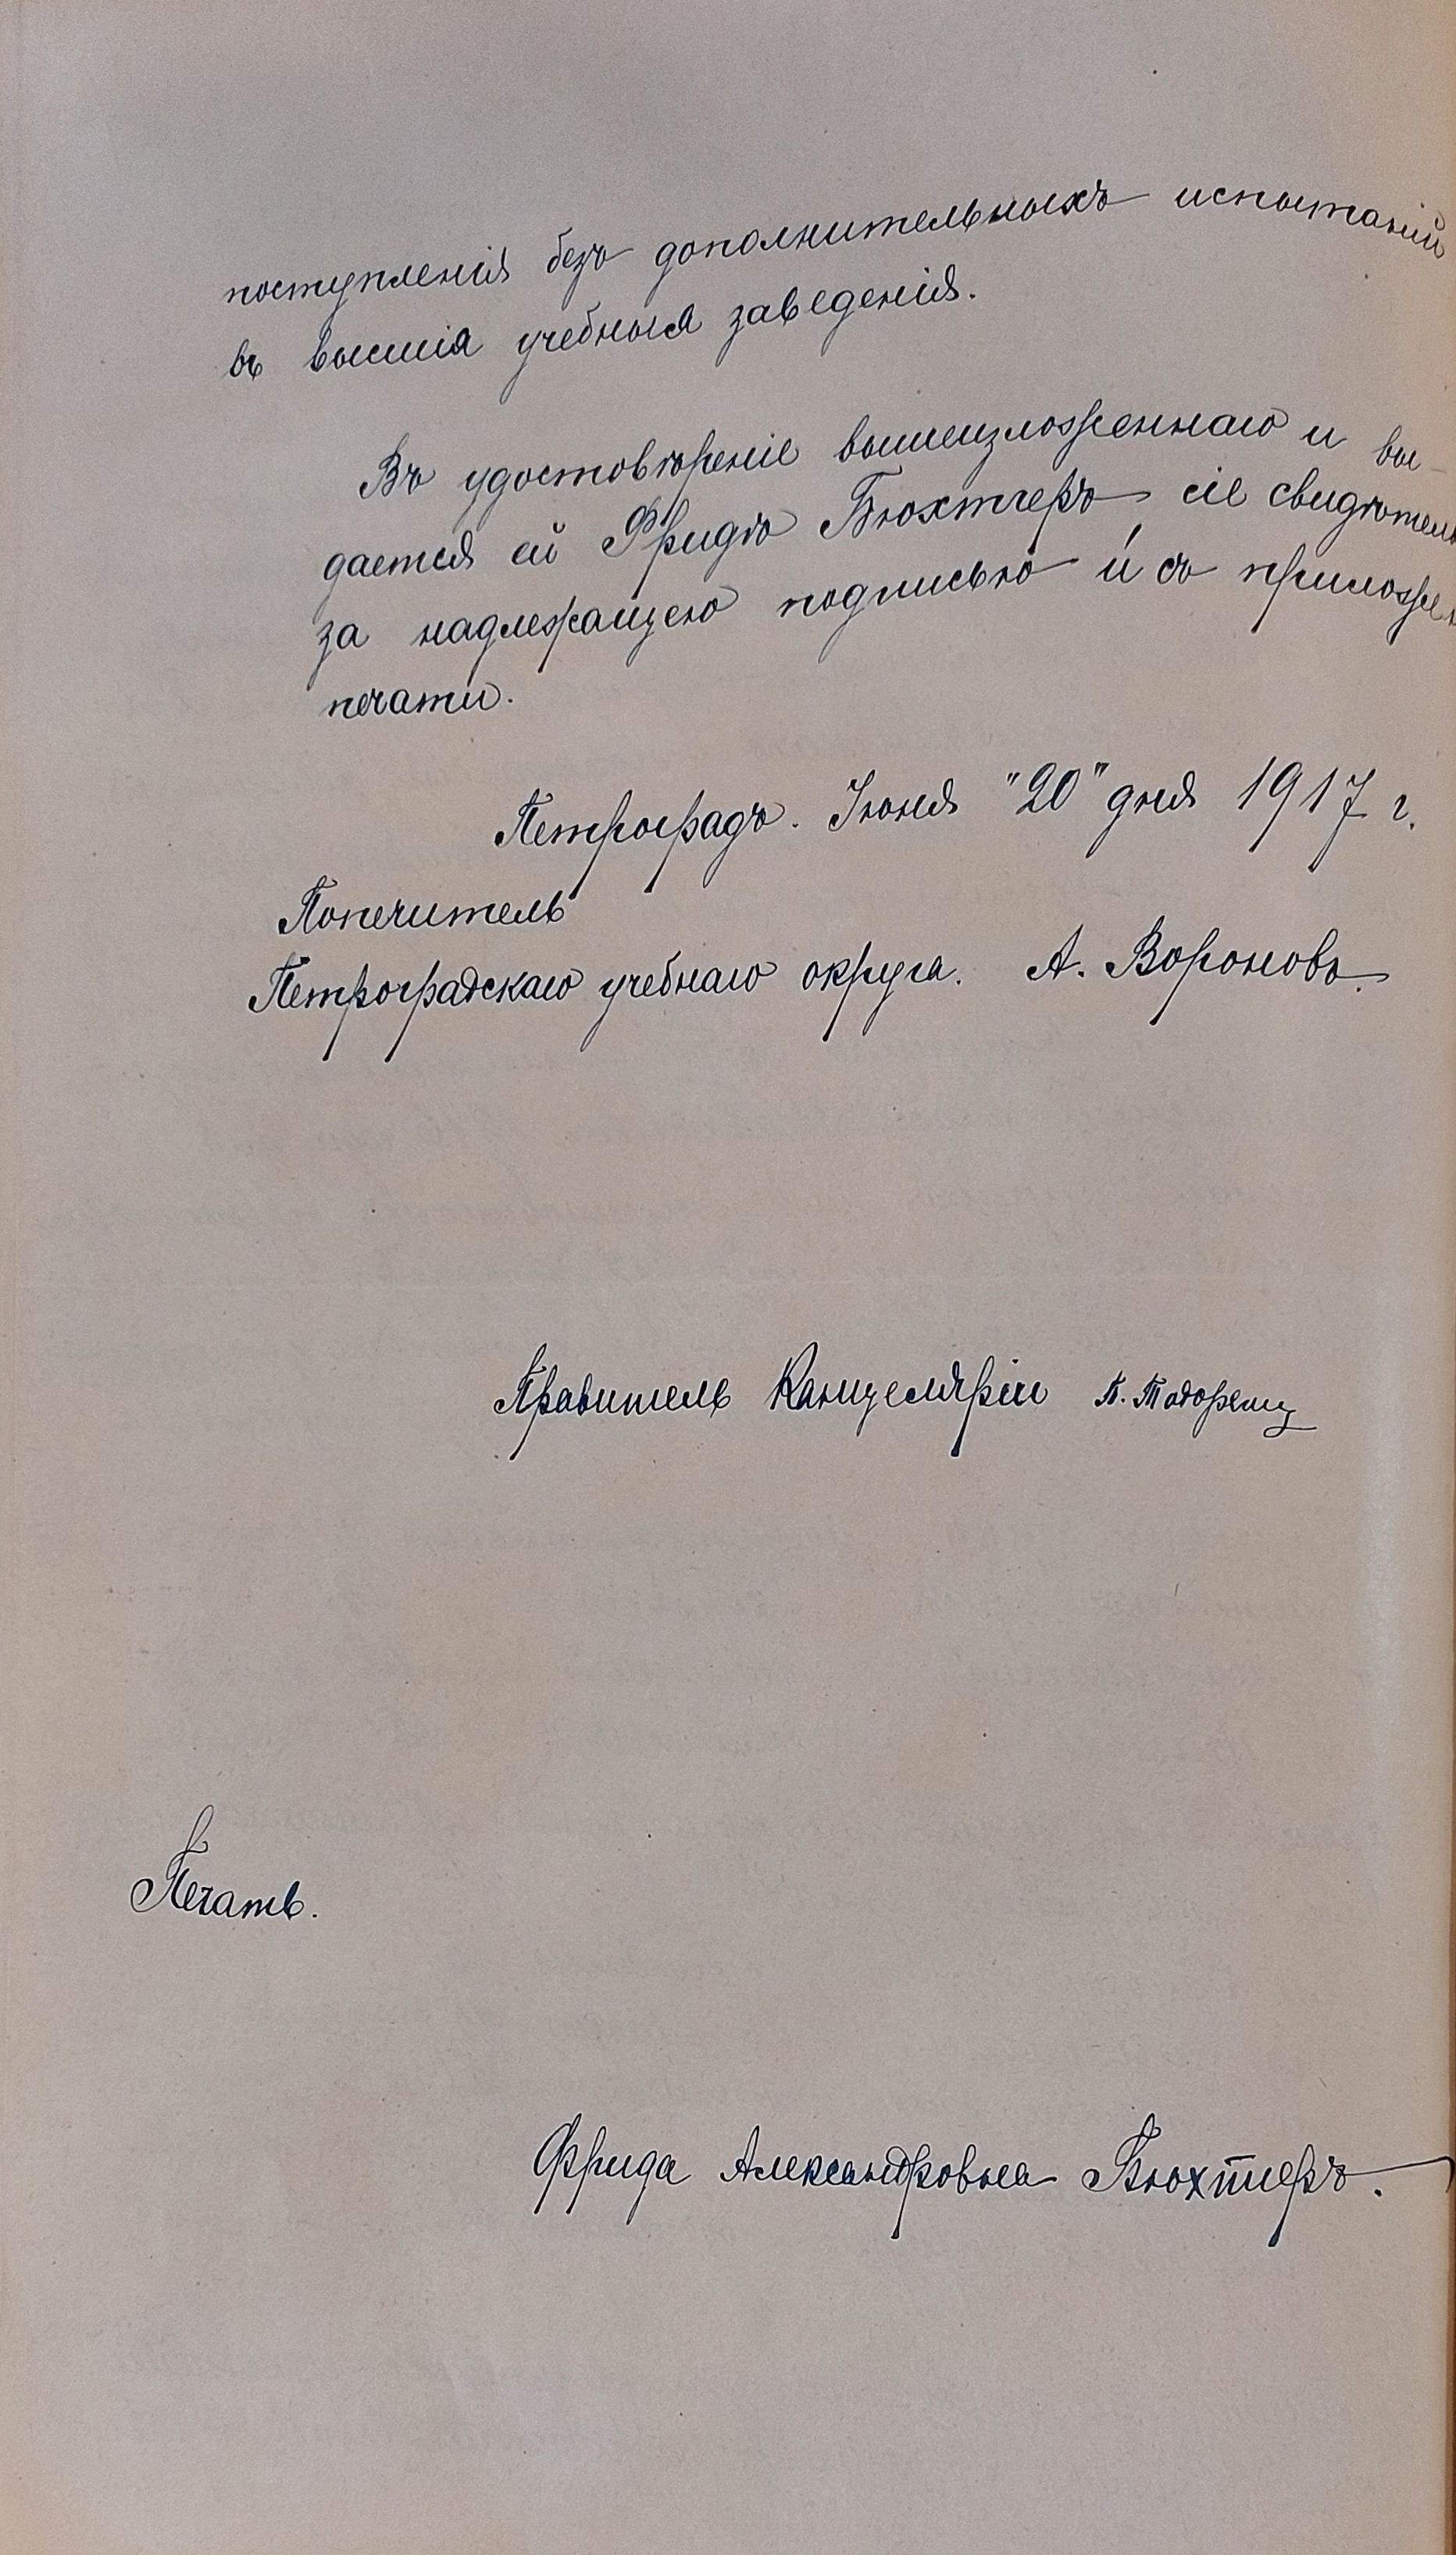 поступленія безъ дополнительныхъ испытаній
въ высшія учебныя заведенія.
Въ удостовѣреніе вышеизложеннаго и вы-
дается ей Фридѣ Бюхтгеръ сіе свидѣтель
за надлежащею подписью и съ приложен
печати.
Петроградъ. Іюня "20" дня 1917 г.
Попечитель
Петроградскаго учебнаго округа. А. Вороновъ.
Правитель Канцеляріи П.
Печать.
Фрида Александровна Бюхтгеръ.